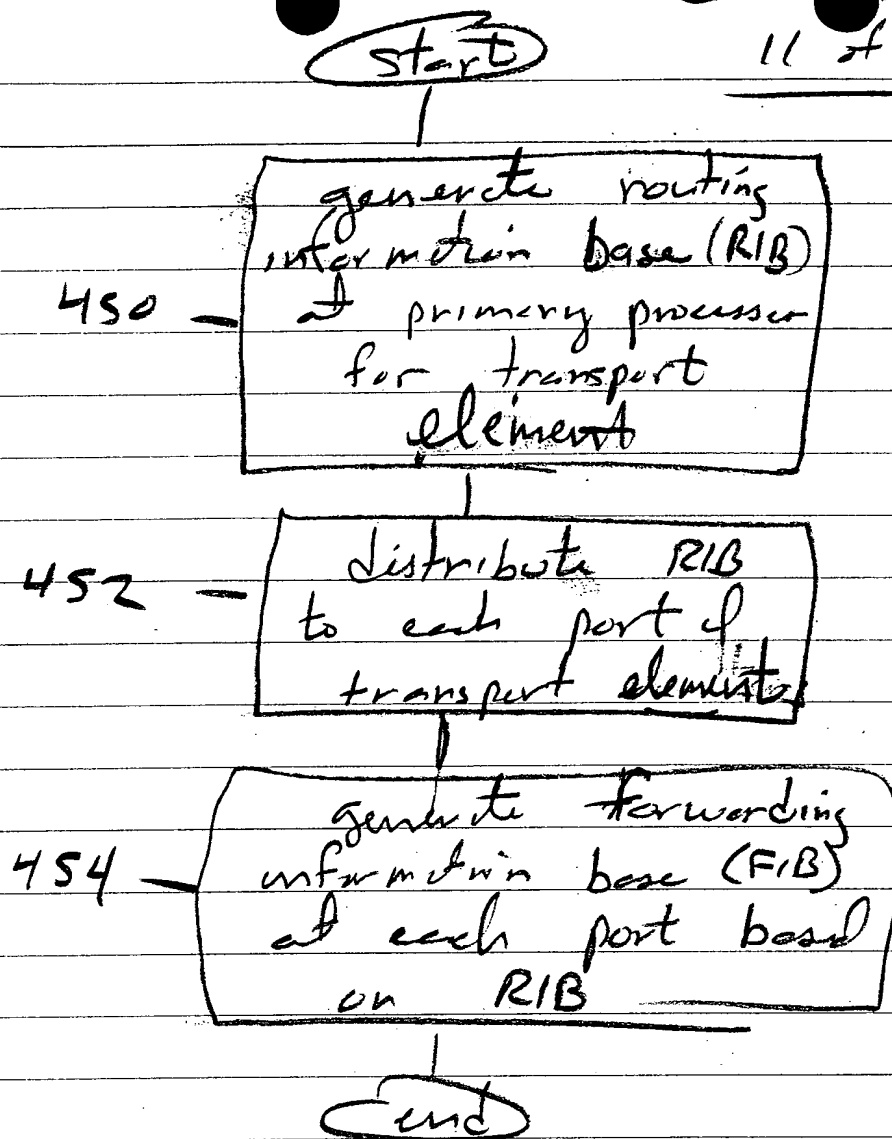 start
11 of
generate routing
information base (RIB)
450 - at primary processor
for transport
element
distribute RIB
452 -
to each port of
transport element
generate forwarding
454 - information base (FIB)
at each port based
on RIB
end